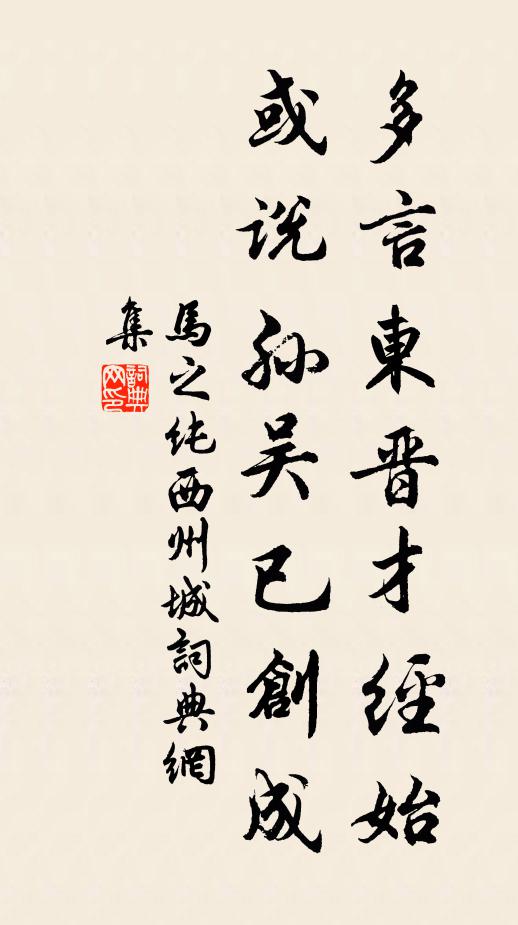 多言東晋才經始
或説孫吴已創成
馬之纯西州城詞典網
集
詞典
网印